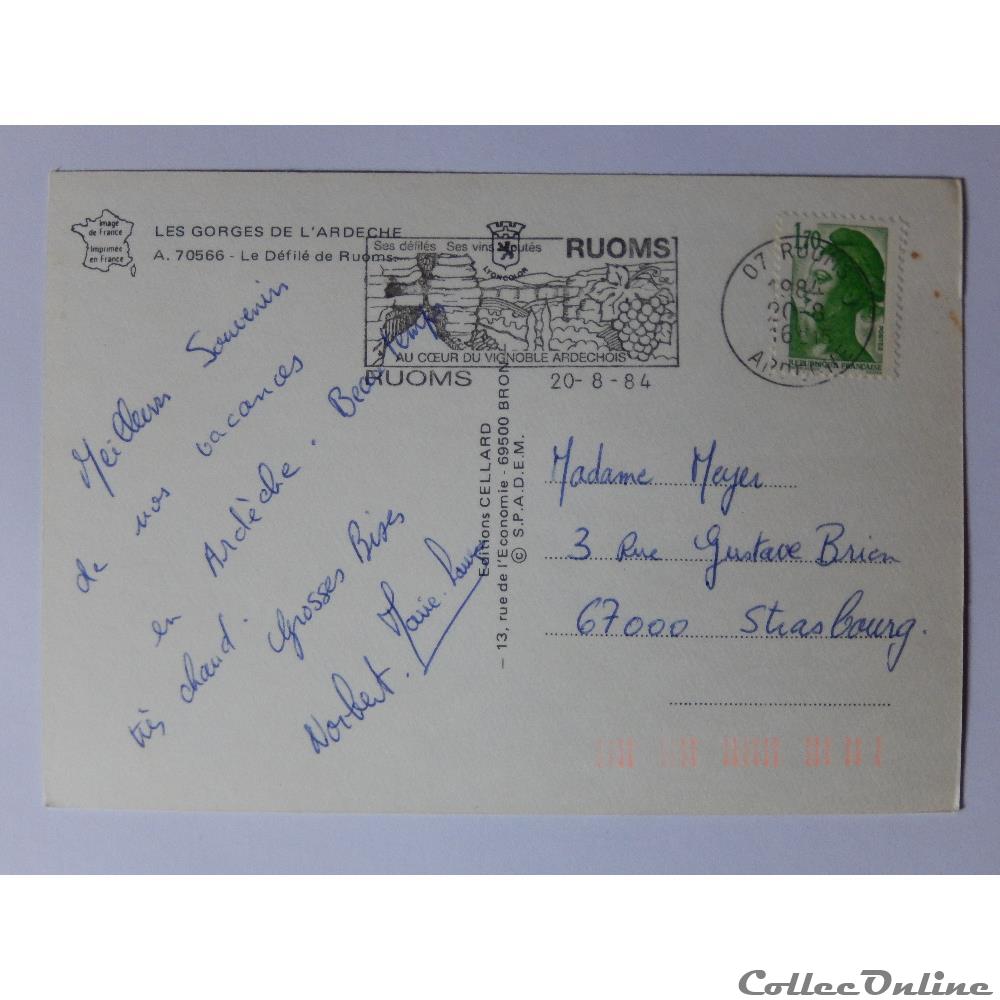 Image
de France
Imprimée
en France
LES GORGES DE L'ARDECHE
A. 70566 - Le Défilé de Ruoms.
LYONCOLOR
Ses défilés Ses vins réputés
RUOMS
AU CŒUR DU VIGNOBLE ARDECHOIS
RUOMS 20-8-84
1,70
REPUBLIQUE FRANCAISE
07 RUOMS
1984
20-8
ARDECHE
Meilleurs Souvenirs
de nos vacances
en Ardèche. Beau temps
très chaud.
Grosses Bises
Norbert. Marie-Laure
Editions CELLARD
- 13, rue de l'Economie - 69500 BRON -
© S.P.A.D.E.M.
Madame Meyer
3 Rue Gustave Brion
67000 Strasbourg.
CollecOnline